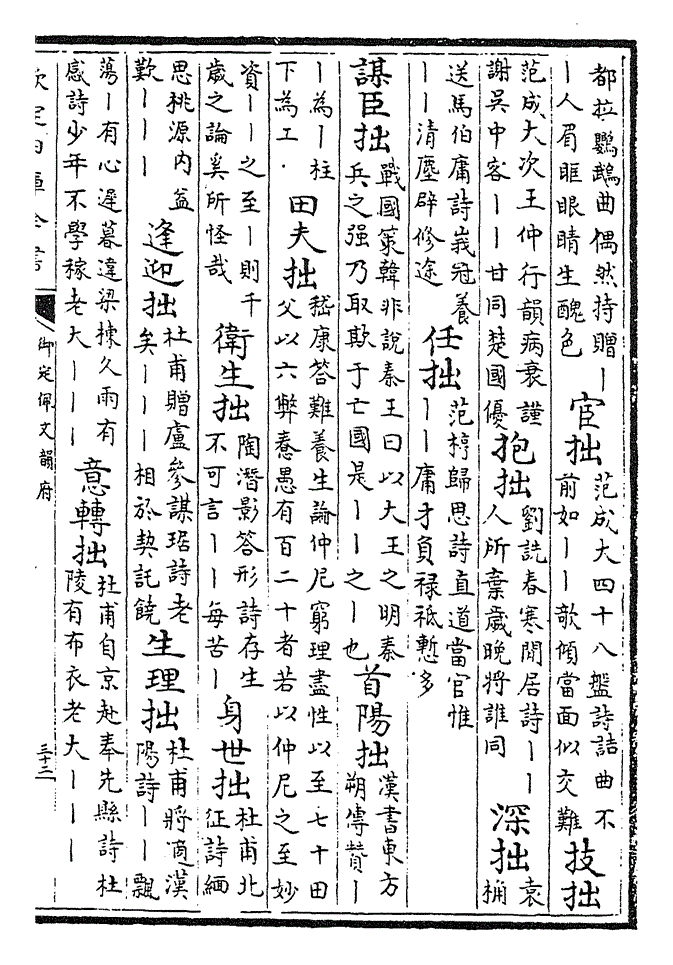 都拉鸚鵡曲偶然持贈丨
丨人眉眶眼睛生醜色
宦拙
范成大四十八盤詩詰曲不
前如丨丨欹傾當面似交難
技拙
范成大次王仲行韻病衰謹
謝吳中客丨丨甘同楚國優
抱拙
劉詵春寒閒居詩丨丨
人所棄歲晚將誰同
深拙
袁
桷
送馬伯庸詩峩冠養
丨丨清塵辟修途
任拙
范梈歸思詩直道當官惟
丨丨庸才負禄祗慙多
謀臣拙
戰國策韓非說秦王曰以大王之明秦
兵之强乃取欺于亡國是丨丨之丨也
首陽拙
漢書東方
朔傳贊丨
丨為丨柱
下為工
田夫拙
嵇康答難養生論仲尼窮理盡性以至七十田
父以六弊惷愚有百二十者若以仲尼之至妙
資丨丨之至丨則千
歲之論奚所怪哉
衛生拙
陶潛影答形詩存生
不可言丨丨每苦丨
身世拙
杜甫北
征詩緬
思桃源内益
歎丨丨丨
逢迎拙
杜甫贈盧參謀琚詩老
矣丨丨丨相於契託饒
生理拙
杜甫將適漢
陽詩丨丨飄
蕩丨有心遲暮違梁棟久雨有
感詩少年不學稼老大丨丨丨
意轉拙
杜甫自京赴奉先縣詩杜
陵有布衣老大丨丨丨
欽定四庫全書
御定佩文韻府
三十二